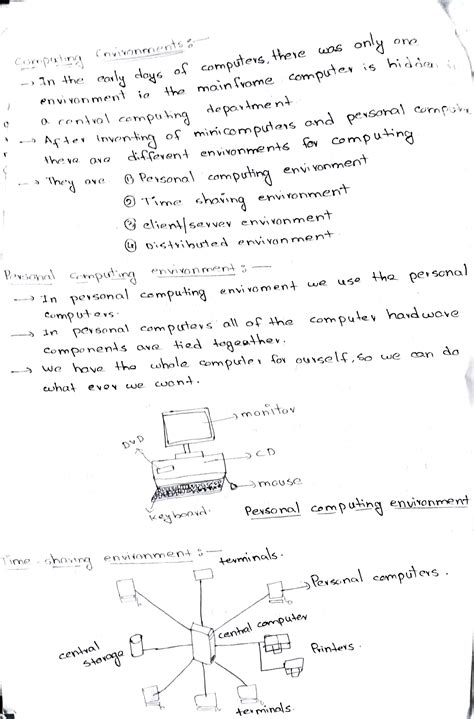 Computing Environments :-
→ In the early days of computers, there was only one
environment ie the mainframe computer is hidden in
a central computing department.
→ After Inventing of minicomputers and personal computer
there are different environments for computing
→ They are ① Personal computing environment
② Time sharing environment
③ client/server environment
④ Distributed environment.
Personal computing environment :-
→ In personal computing enviroment we use the personal
computers.
→ In personal computers all of the computer hardware
components are tied togeather.
→ We have the whole computer for ourself, so we can do
what ever we want.
monitor
DVD
CD
mouse
keyboard.
Personal computing environment
Time-sharing environment :-
terminals.
Personal computers.
central computer
central
storage
Printers.
terminals.